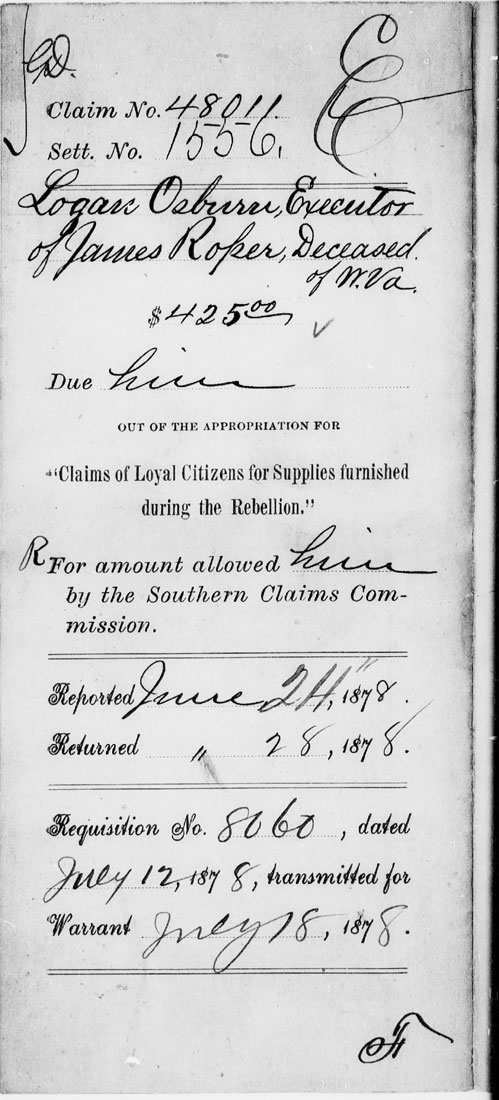 G.D.
E
Claim No. 48011.
Sett. No. 1556.
Logan Osburn, Executor
of James Roper, Deceased.
of W. Va.
$425.00
Due him
OUT OF THE APPROPRIATION FOR
"Claims of Loyal Citizens for Supplies furnished
during the Rebellion."
R For amount allowed him
by the Southern Claims Com-
mission.
Reported June 24, 1878.
Returned " 28, 1878.
Requisition No. 8060, dated
July 12, 1878, transmitted for
Warrant July 18, 1878.
F